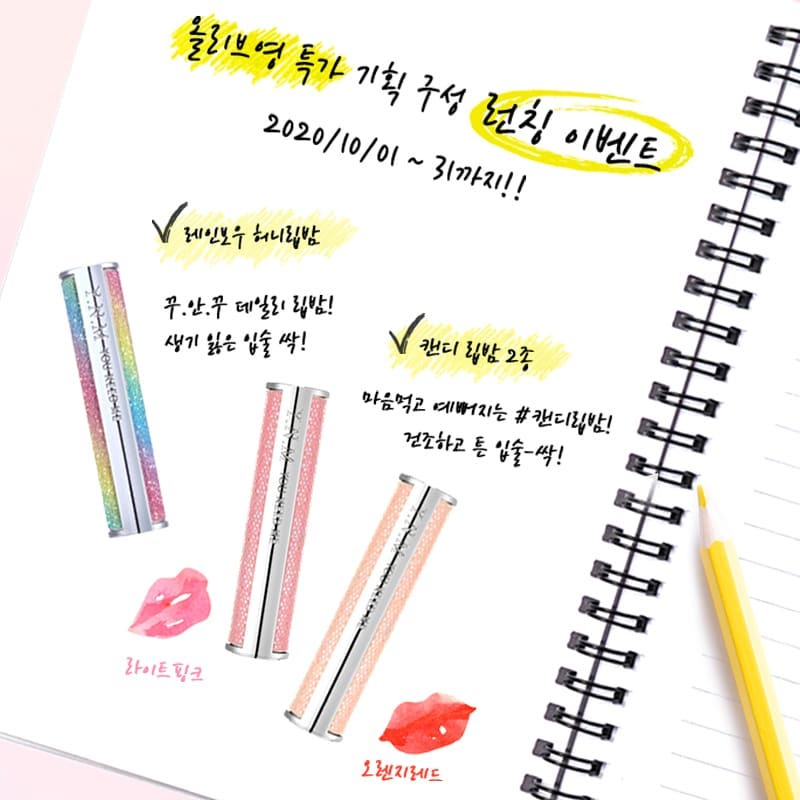 올리브영 특가 기획 구성 런칭 이벤트
2020/10/01 ~ 31까지!!
레인보우 허니립밤
꾸.안.꾸 데일리 립밤!
생기 잃은 입술 싹!
캔디 립밤 2종
마음먹고 예뻐지는 #캔디립밤!
건조하고 튼 입술-싹!
라이트핑크
오렌지레드